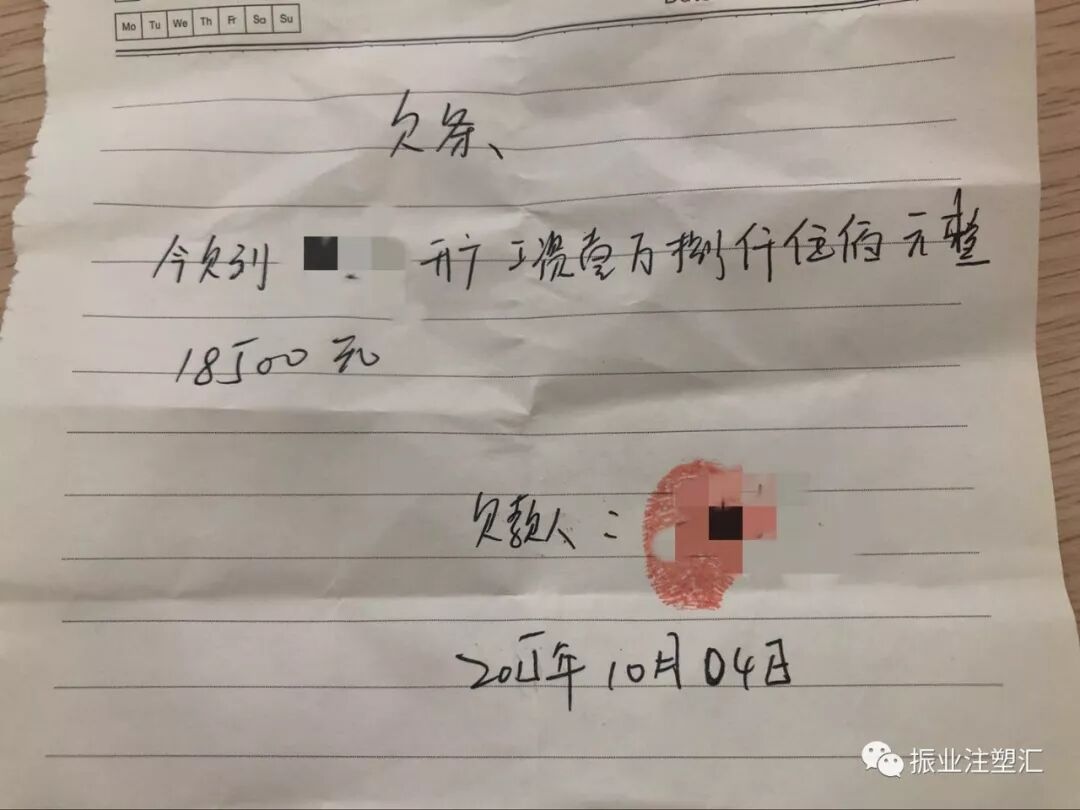 Mo Tu We Th Fr Sa Su
欠条、
今欠到 开矿工资壹万捌仟伍佰元整
18500元
欠款人：
2015年10月04日
振业注塑汇